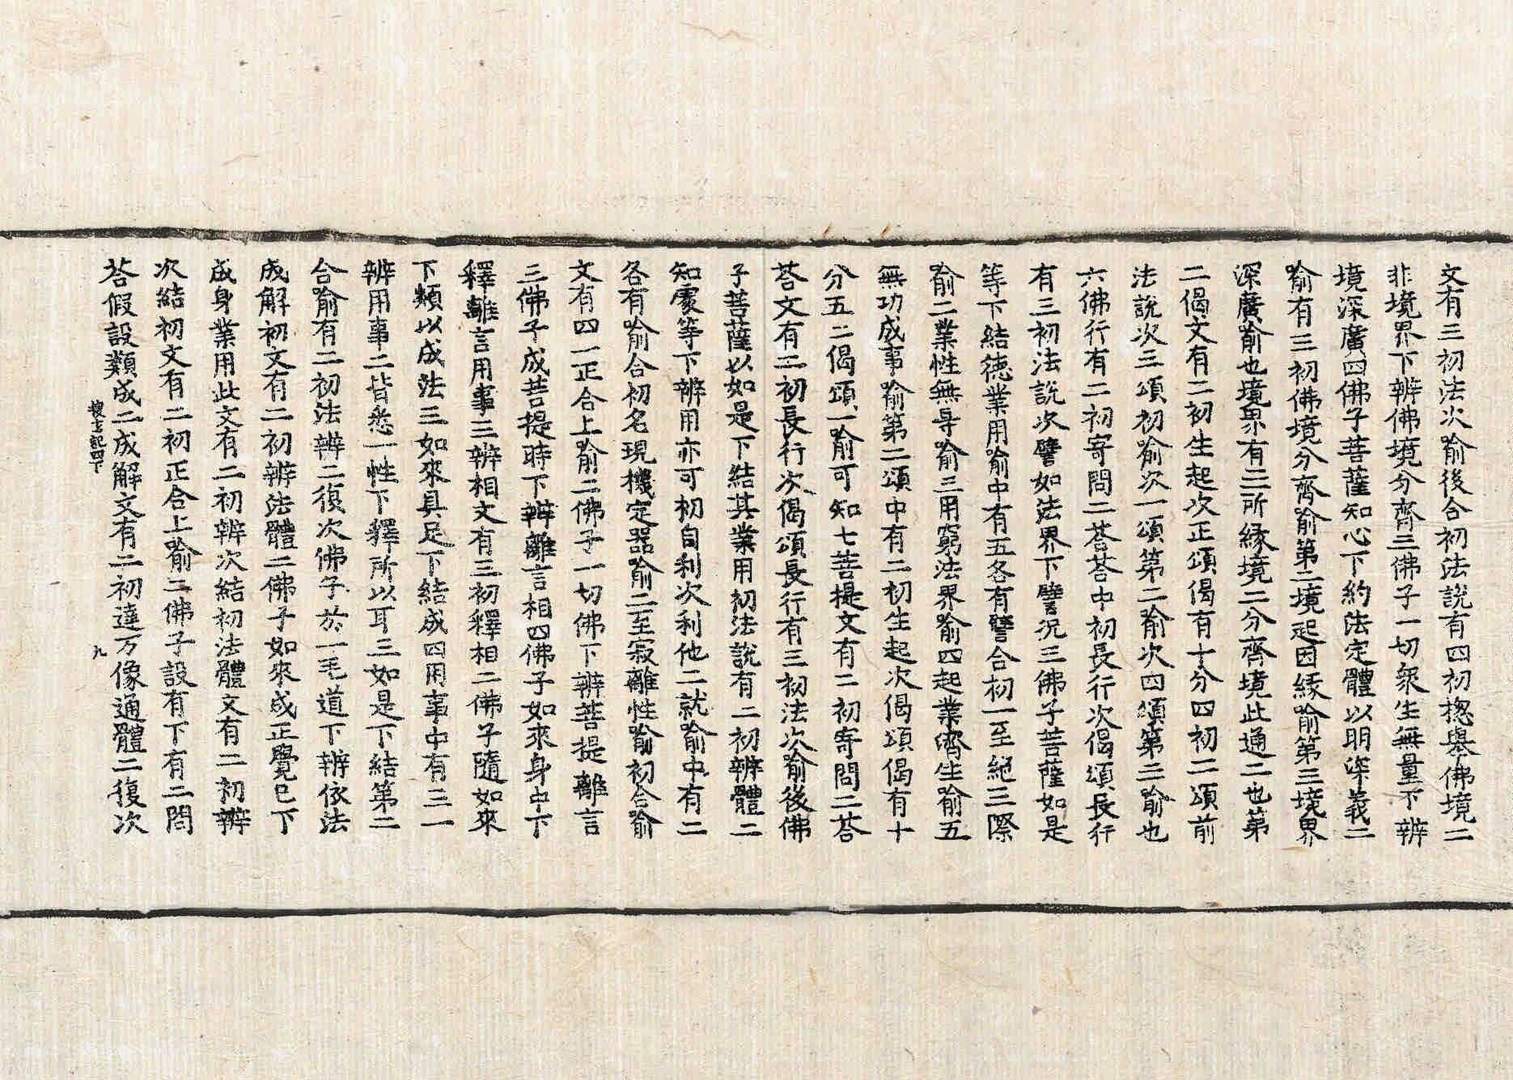 文有三初法次喻後合初法說有四初揔舉佛境二
非境界下辨佛境分齊三佛子一切衆生無量下辨
境深廣四佛子菩薩知心下約法定體以明深義二
喻有三初佛境分齊喻第二境起因縁喻第三境界
深廣喻也境界有三所縁境二分齊境此通二也第
二偈文有二初生起次正頌偈有十分四初二頌前
法說次三頌初喻次一頌第二喻次四頌第三喻也
六佛行有二初寄問二荅荅中初長行次偈頌長行
有三初法說次譬如法界下譬況三佛子菩薩如是
等下結徳業用喻中有五各有譬合初一至絕三際
喻二業性無导喻三用窮法界喻四起業齊生喻五
無功成事喻第二頌中有二初生起次偈頌偈有十
分五二偈頌一喻可知七菩提文有二初寄問二荅
荅文有二初長行次偈頌長行有三初法次喻後佛
子菩薩以如是下結其業用初法說有二初辨體二
知處等下辨用亦可初自利次利他二就喻中有二
各有喻合初名現機定器喻二至寂離性喻初合喻
文有四一正合上喻二佛子一切佛下辨菩提離言
三佛子成菩提時下辨離言相四佛子如來身中下
釋離言用事三辨相文有三初釋相二佛子隨如來
下類以成法三如來具足下結成四用事中有三一
辨用事二皆悉一性下釋所以耳三如是下結第二
合喻有二初法辨二復次佛子於一毛道下辨依法
成解初文有二初辨法體二佛子如來成正覺已下
成身業用此文有二初辨次結初法體文有二初辨
次結初文有二初正合上喻二佛子設有下有二問
荅假設類成二成解文有二初達万像通體二復次
搜玄記四下
九